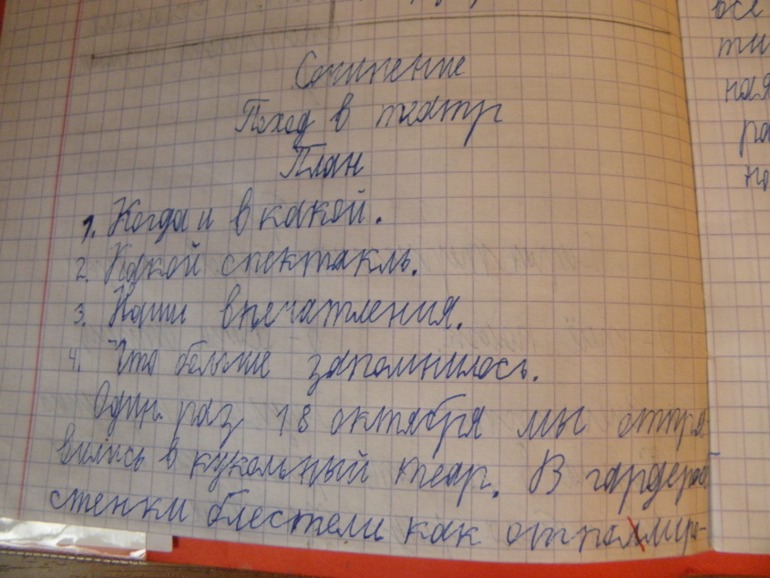 Сочинение
Поход в театр
План
1. Когда и в какой.
2. Какой спектакль.
3. Наши впечатления.
4. Что больше запомнилось.
Один раз 18 октября мы отпра
вились в кукольный теар. В гардероб
стенки блестели как отполиро-
все
ти
ная
ра
на